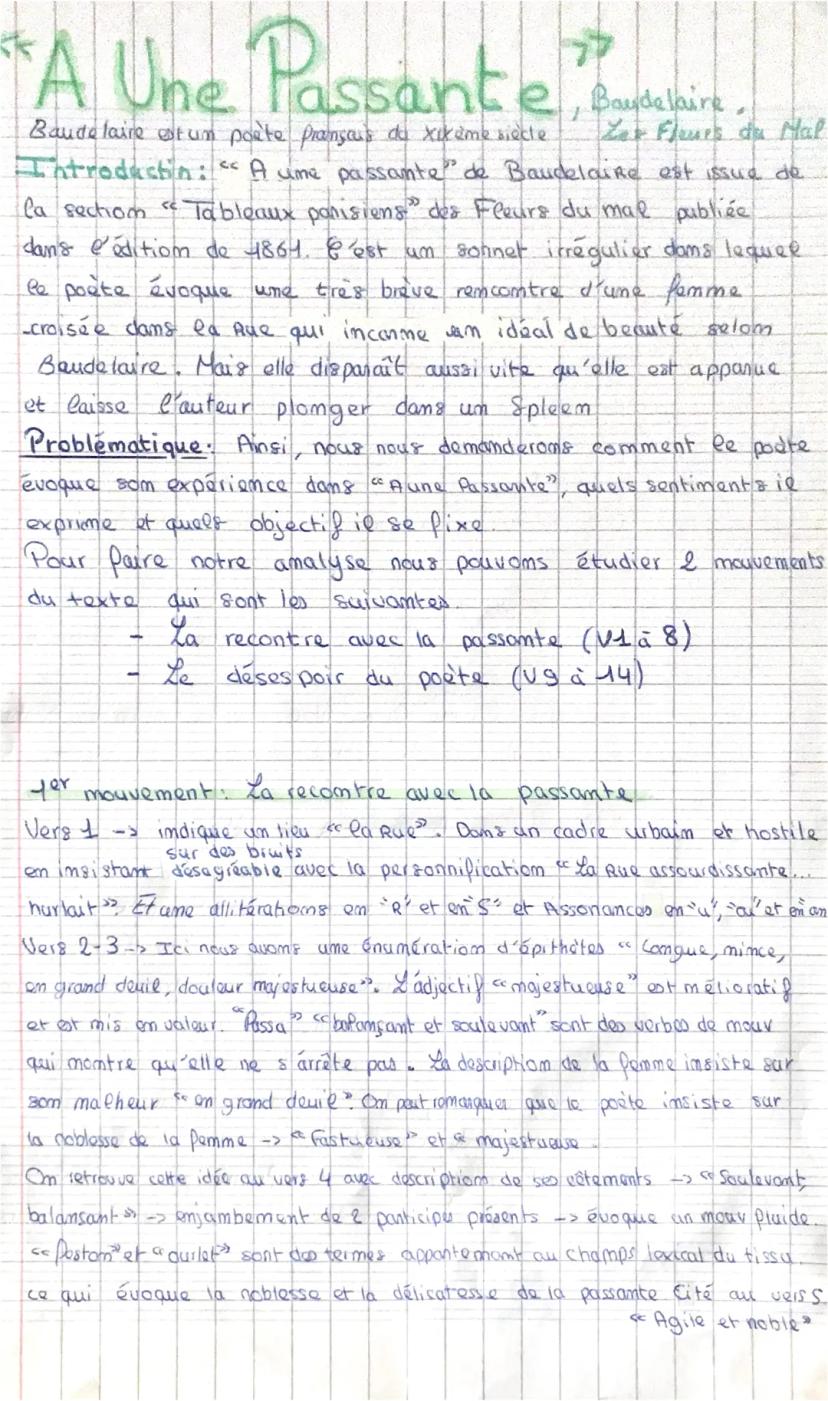 "A Une Passante", Baudelaire,
Baudelaire est un poète français du xixème siècle Les Fleurs du Mal
Introductin : "A une passante" de Baudelaire est issue de
la section "Tableaux parisiens" des Fleurs du mal publiée
dans l'édition de 1861. C'est un sonnet irrégulier dans lequel
le poète évoque une très brève remcontre d'une femme
croisée dans la rue qui incarne un idéal de beauté selom
Baudelaire. Mais elle disparaît aussi vite qu'elle est apparue
et laisse l'auteur plonger dans un Spleen
Problématique : Ainsi, nous nous demanderons comment le poète
évoque son expérience dans "A une Passante", quels sentiments il
exprime et quels objectif il se fixe.
Pour faire notre analyse nous pouvons étudier 2 mouvements
du texte qui sont les suivantes.
- La recontre avec la passante (V1 à 8)
- Le désespoir du poète (V9 à 14)
1er mouvement : La recontre avec la passante
Vers 1 -> indique un lieu "la Rue". Dans un cadre urbain et hostile
sur des bruits
en insistant désagréable avec la personnification "La Rue assourdissante...
hurlait". Et une allitérations en "R" et en "S" et Assonances en "u", "ou" et en an
Vers 2-3 -> Ici nous avons une énumération d'épithètes "Longue, mince,
en grand deuil, douleur majestueuse". L'adjectif "majestueuse" est mélioratif
et est mis en valeur. "Passa" "balançant et soulevant" sont des verbes de mouv
qui montre qu'elle ne s'arrête pas. La description de la femme insiste sur
son malheur "en grand deuil". On peut remarquer que le poète insiste sur
la noblesse de la femme -> "Fastueuse" et "majestueuse.
On retrouve cette idée au vers 4 avec description de ses vêtements -> "Soulevant,
balansant" -> enjambement de 2 participe présents -> évoque un mouv fluide.
"Feston" et "ourlet" sont des termes appartenant au champs lexical du tissu.
ce qui évoque la noblesse et la délicatesse de la passante Cité au vers 5
"Agile et noble"